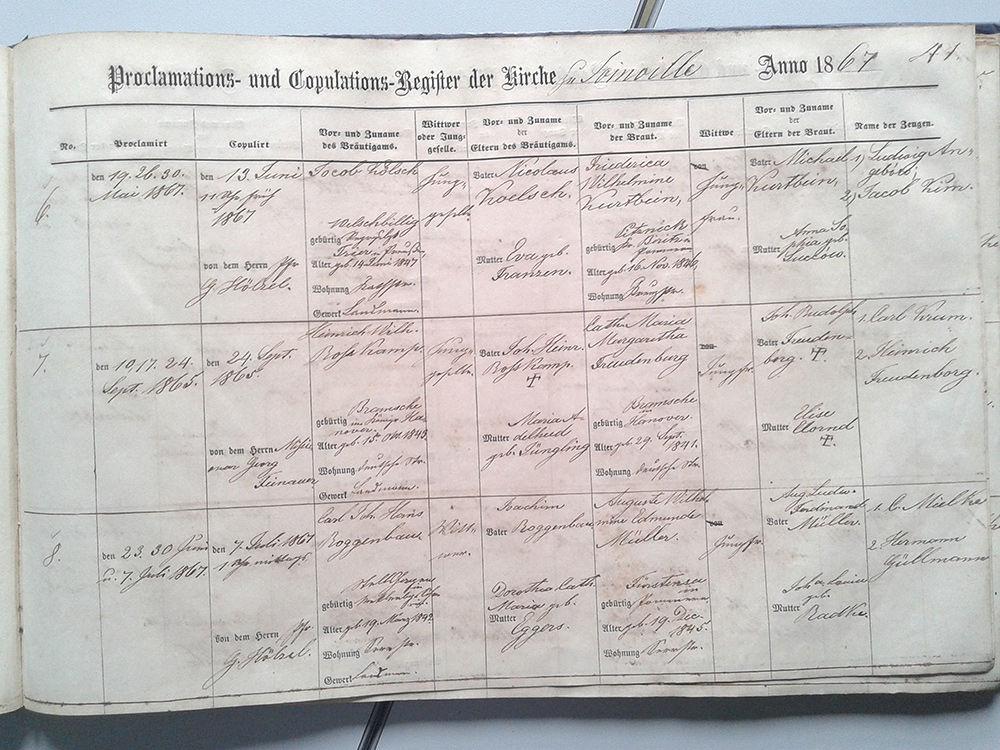 Proclamations- und Copulations-Register der Kirche zu Joinville Anno 1867 41.
No.
Proclamirt
Copulirt
Vor- und Zuname
des Bräutigams.
Wittwer
oder Jung-
geselle.
Vor- und Zuname
der
Eltern des Bräutigams.
Vor- und Zuname
der Braut.
Wittwe
Vor- und Zuname
der
Eltern der Braut.
Name der Zeugen.
6.
den 19. 26. 30.
Mai 1867.
den 13. Juni
11 Uhr früh
1867
von dem Herrn Pfr
G. Hölzel.
Jacob Kölsch
Welschbillig
gebürtig
Trier in Preußen
Alter geb 14 Juni 1847
Wohnung
Gewerk Landmann.
Jung-
gesell.
Vater Nicolaus
Koelsch.
Mutter Eva geb.
Franzen.
Friederica
Wilhelmine
Kurtbein,
gebürtig
Pommern
Alter geb. 16. Nov. 1846
Wohnung
von
Jung-
frau.
Vater Michael
Kurtbein,
Mutter Anna So
phia geb.
1) Ludwig An-
2) Jacob Kim.
7.
den 10. 17. 24.
Sept. 1865.
den 24. Sept.
1865.
von dem Herrn Missi-
onar Georg
Heinrich Wilh.
Ross Kamp.
Bramsche
gebürtig im Königr. Ha-
nover.
Alter geb. 15. Okt. 1843.
Wohnung deutsche Str.
Gewerk Landmann.
Jung-
geselle.
Vater Joh. Heinr.
Ross Kamp.
†
Maria A-
Mutter delheid
geb. Jüngling
Cath. Maria
Margaretha
Freudenburg
Bramsche
gebürtig in
Hanover.
Alter geb. 29. Sept.
1841.
Wohnung deutsche Str.
von
Jungfr.
Joh. Rudolph
Vater Freuden-
borg. †
Elise
Mutter
†.
1. Carl Krum.
2. Heinrich
Freudenborg.
8.
den 23. 30 Juni
u. 7. Juli 1867.
den 7. Juli 1867
1 Uhr mittags.
von dem Herrn Pfr
G. Hölzel.
Carl Joh. Hans
Roggenbau
gebürtig
Alter geb. 19. März 1842.
Wohnung Serrastr.
Gewerk Landmann.
Witt-
wer.
Joachim
Vater Roggenbau
Dorothea Cath.
Maria geb.
Mutter
Eggers.
Auguste Wilhel
mine Edmunde
Müller.
gebürtig in
Pommern
Alter geb. 19. Dec.
1845.
Wohnung Serrastr.
von
Jungfr.
Aug. Ludw.
Ferdinand
Vater Müller.
Joh. Louise
geb.
Mutter
Radke.
1. C. Mielke
2. Hermann
Güllmann